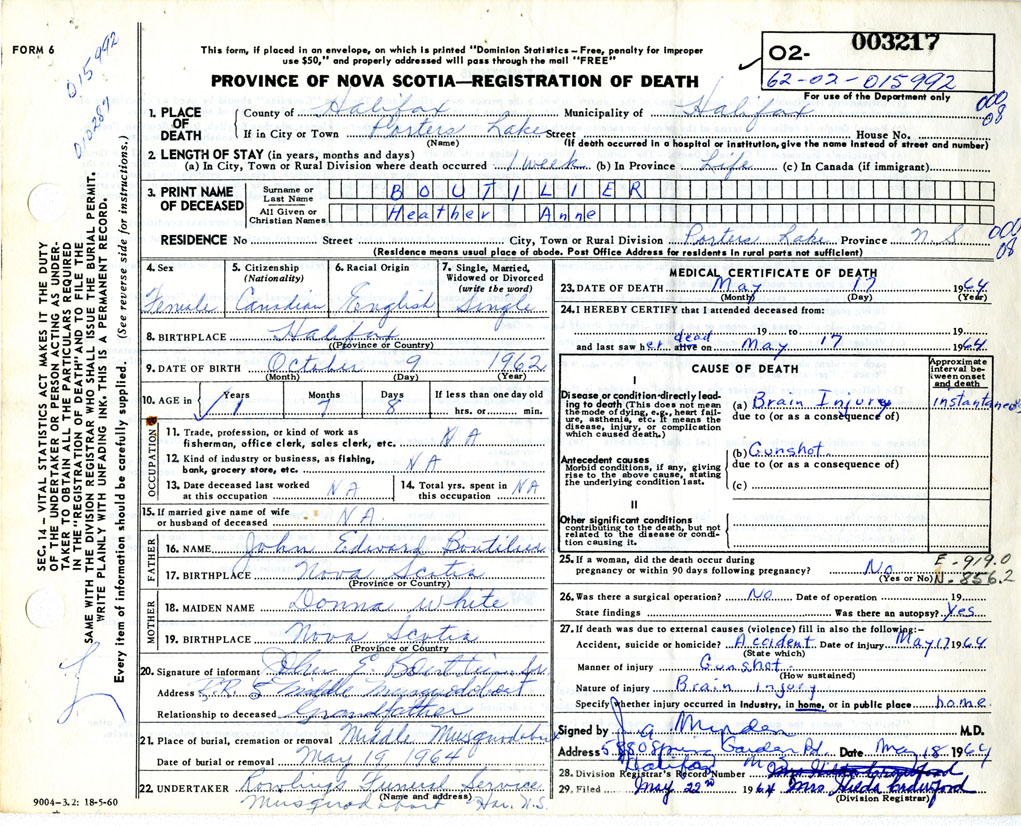 FORM 6
015992
010287
This form, if placed in an envelope, on which is printed "Dominion Statistics – Free, penalty for improper
use $50," and properly addressed will pass through the mail "FREE"
PROVINCE OF NOVA SCOTIA—REGISTRATION OF DEATH
02- 003217
62-02-015992
For use of the Department only
000
08
1. PLACE OF DEATH
County of Halifax Municipality of Halifax
If in City or Town Porters Lake Street House No.
(Name) (If death occurred in a hospital or institution, give the name instead of street and number)
2. LENGTH OF STAY (in years, months and days)
(a) In City, Town or Rural Division where death occurred 1 week (b) In Province Life (c) In Canada (if immigrant)
3. PRINT NAME OF DECEASED
Surname or Last Name BOUTILIER
All Given or Christian Names Heather Anne
RESIDENCE No Street City, Town or Rural Division Porters Lake Province N.S
(Residence means usual place of abode. Post Office Address for residents in rural parts not sufficient)
000
08
4. Sex Female
5. Citizenship (Nationality) Canadian
6. Racial Origin English
7. Single, Married, Widowed or Divorced (write the word) Single
8. BIRTHPLACE Halifax
(Province or Country)
9. DATE OF BIRTH October 9 1962
(Month) (Day) (Year)
10. AGE in Years Months Days If less than one day old
1 7 8 hrs. or min.
OCCUPATION
11. Trade, profession, or kind of work as fisherman, office clerk, sales clerk, etc. NA
12. Kind of industry or business, as fishing, bank, grocery store, etc. NA
13. Date deceased last worked at this occupation NA
14. Total yrs. spent in this occupation NA
15. If married give name of wife or husband of deceased NA.
FATHER
16. NAME John Edward Boutilier
17. BIRTHPLACE Nova Scotia
(Province or Country)
MOTHER
18. MAIDEN NAME Donna White
19. BIRTHPLACE Nova Scotia
(Province or Country)
20. Signature of informant John E. Boutilier Sr.
Address R.R. 5 Middle Musquodoboit
Relationship to deceased Grandfather
21. Place of burial, cremation or removal Middle Musquodoboit
Date of burial or removal May 19 1964
22. UNDERTAKER Rowlings Funeral Service
(Name and address)
Musquodoboit Har. N.S.
9004-3.2: 18-5-60
MEDICAL CERTIFICATE OF DEATH
23. DATE OF DEATH May 17 1964
(Month) (Day) (Year)
24. I HEREBY CERTIFY that I attended deceased from:
19 to 19
and last saw her alive dead on May 17 1964
CAUSE OF DEATH
Approximate interval between onset and death
I
Disease or condition directly leading to death (This does not mean the mode of dying, e.g., heart failure, asthenia, etc. It means the disease, injury, or complication which caused death.)
(a) Brain Injury instantaneous
due to (or as a consequence of)
Antecedent causes
Morbid conditions, if any, giving rise to the above cause, stating the underlying condition last.
(b) Gunshot
due to (or as a consequence of)
(c)
II
Other significant conditions contributing to the death, but not related to the disease or condition causing it.
25. If a woman, did the death occur during pregnancy or within 90 days following pregnancy? No
(Yes or No)
E-919.0
N-856.2
26. Was there a surgical operation? No Date of operation 19
State findings Was there an autopsy? Yes
27. If death was due to external causes (violence) fill in also the following:–
Accident, suicide or homicide? Accident Date of injury May 17 1964
(State which)
Manner of injury Gunshot
(How sustained)
Nature of injury Brain injury
Specify whether injury occurred in industry, in home, or in public place home.
Signed by J a Minden M.D.
Address 5880 Spring Garden Rd Date May 18 1964
Halifax
28. Division Registrar's Record Number
29. Filed May 22nd 1964 Mrs Hilda
(Division Registrar)
SEC. 14 – VITAL STATISTICS ACT MAKES IT THE DUTY
OF THE UNDERTAKER OR PERSON ACTING AS UNDER-
TAKER TO OBTAIN ALL THE PARTICULARS REQUIRED
IN THE "REGISTRATION OF DEATH" AND TO FILE THE
SAME WITH THE DIVISION REGISTRAR WHO SHALL ISSUE THE BURIAL PERMIT.
WRITE PLAINLY WITH UNFADING INK. THIS IS A PERMANENT RECORD.
Every item of information should be carefully supplied. (See reverse side for instructions.)